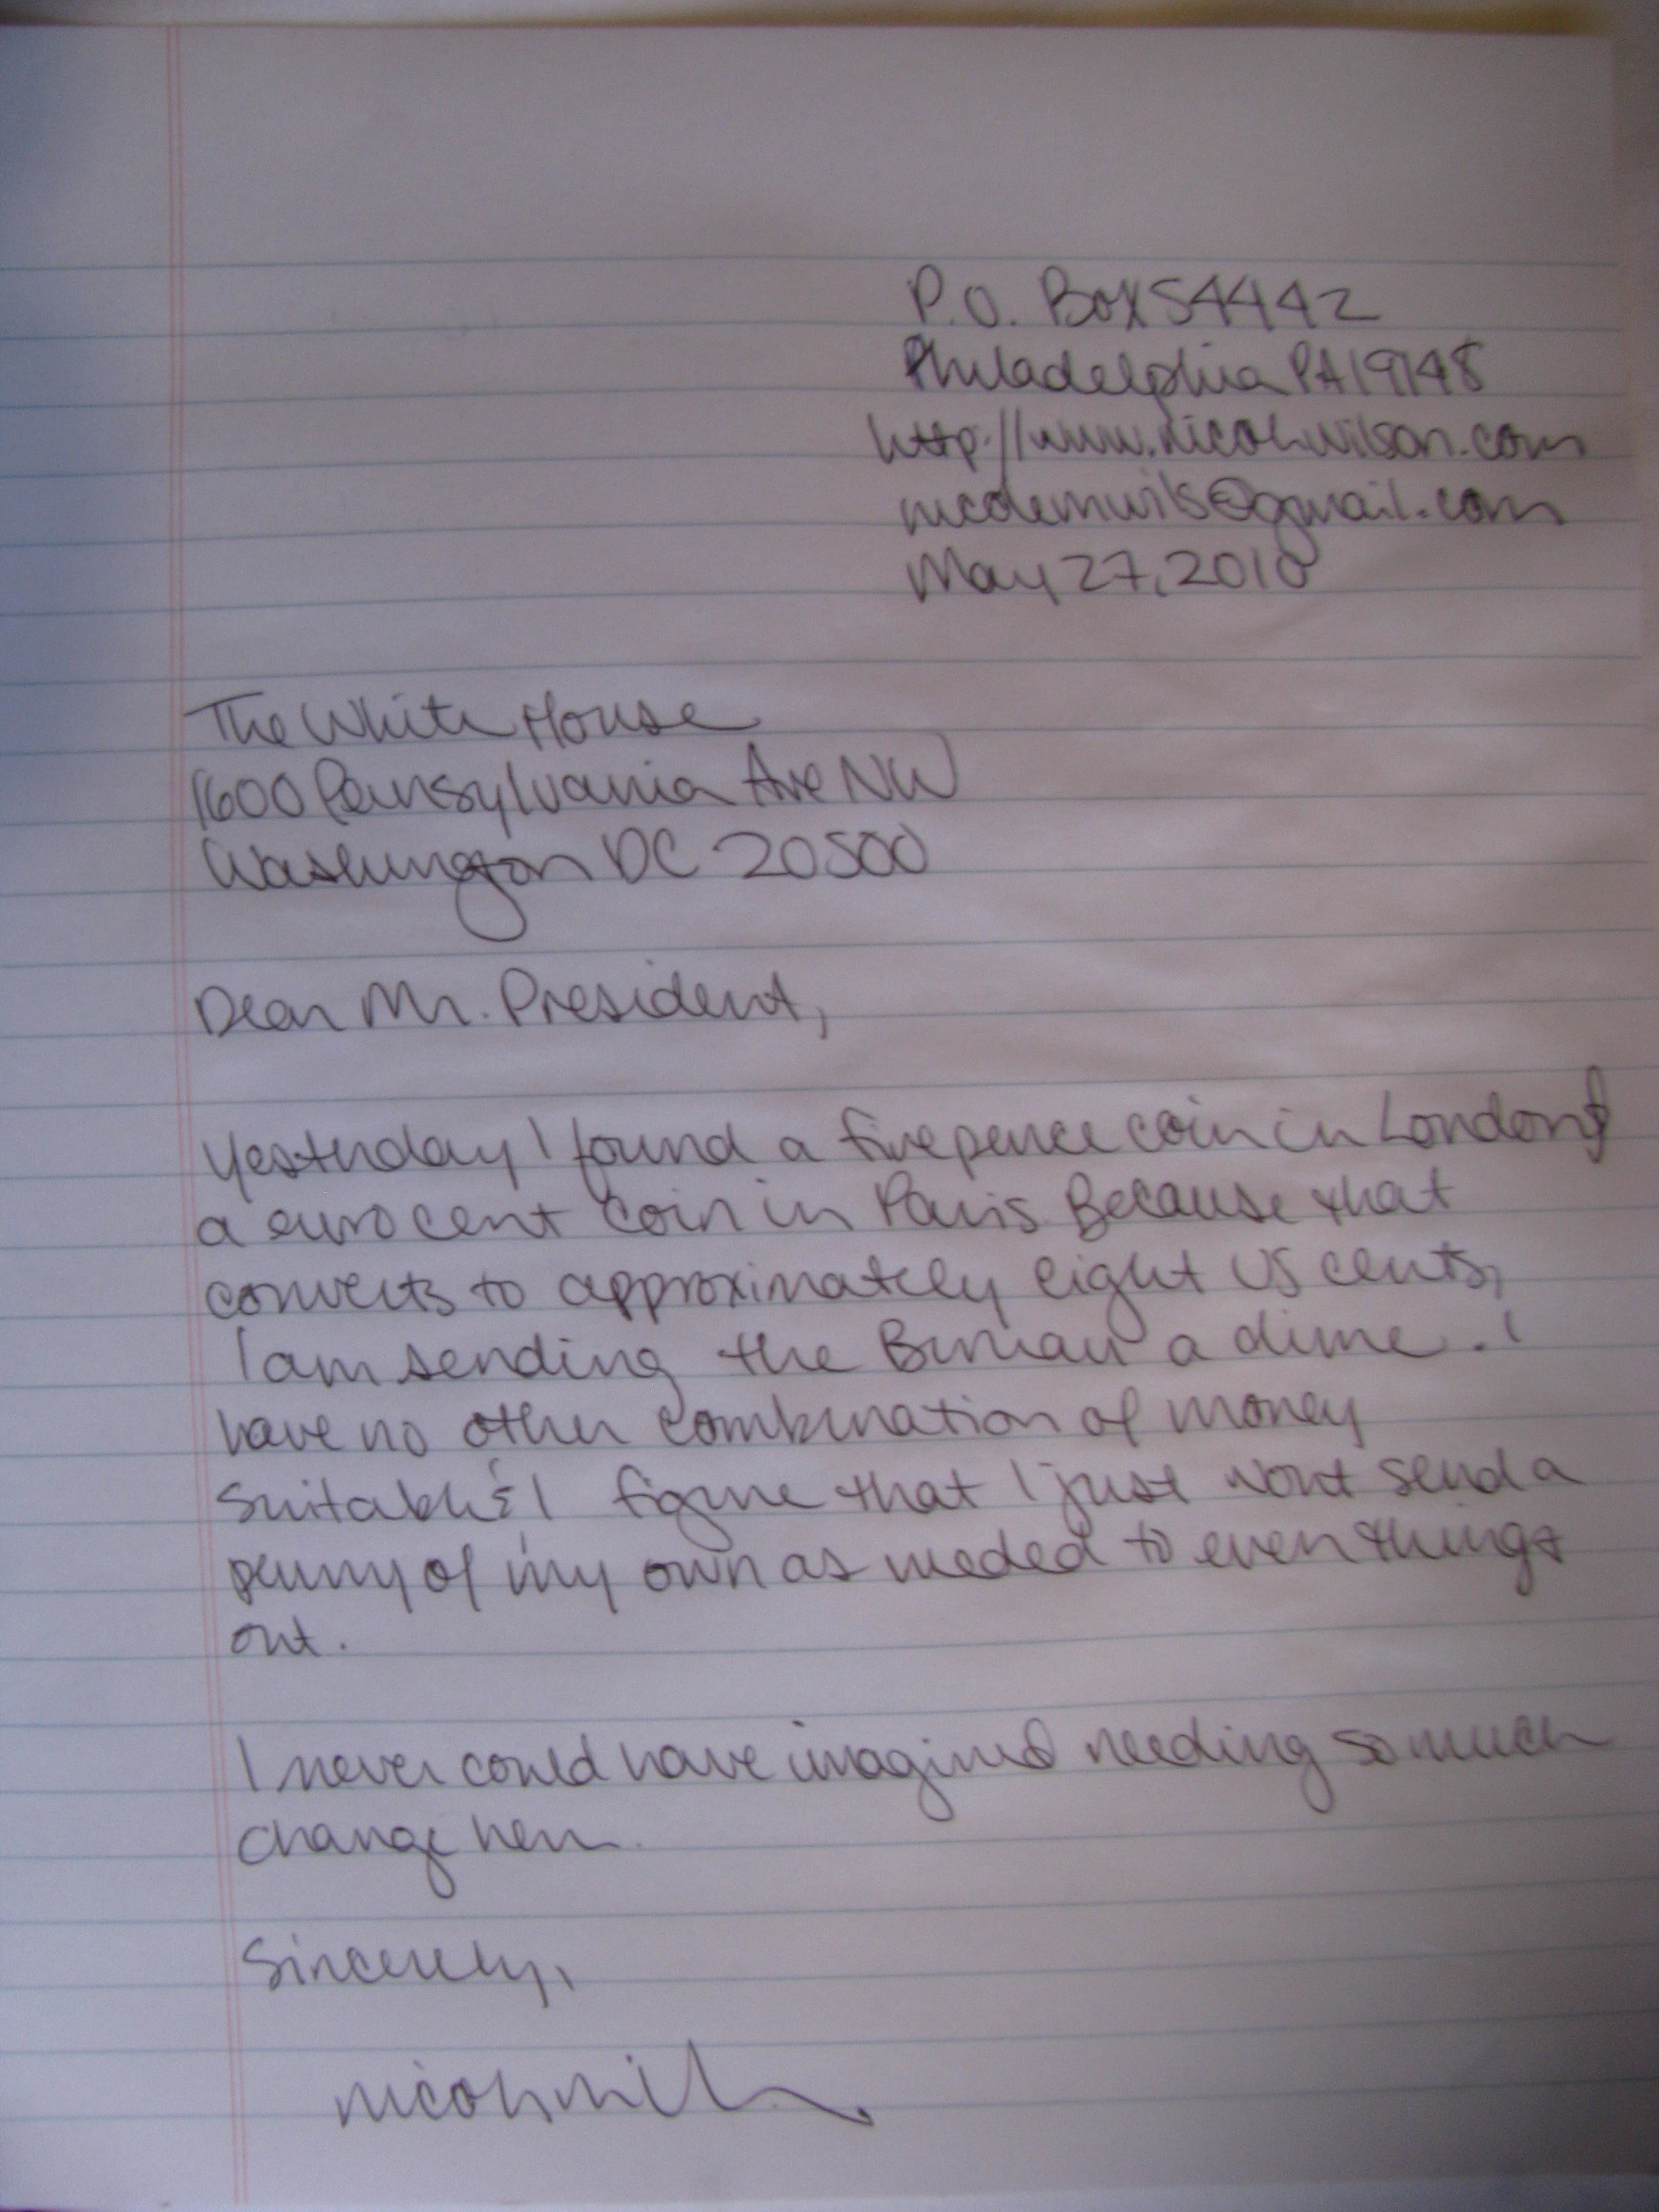 P.O. Box 54442
Philadelphia PA 19148
http://www.nicolewilson.com
nicolemwils@gmail.com
May 27, 2010
The White House
1600 Pennsylvania Ave NW
Washington DC 20500
Dear Mr. President,
Yesterday I found a five pence coin in London &
a euro cent coin in Paris. Because that
converts to approximately eight US cents,
I am sending the Bureau a dime. I
have no other combination of money
suitable & I figure that I just wont send a
penny of my own as needed to even things
out.
I never could have imagined needing so much
change here.
Sincerely,